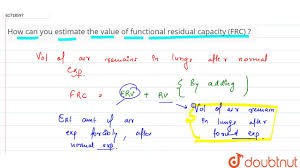 How can you estimate the value of functional residual capacity (FRC) ?
Vol of air remains in lungs after normal
Exp.
FRC = ERV + RV { By adding }
Ext amt of air
exp forcibly, after
normal exp.
Vol of air remain
in lungs after
forced exp.
doubtnut